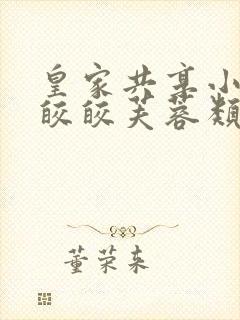 皇家共享小
皎皎芙蓉类
董荣来